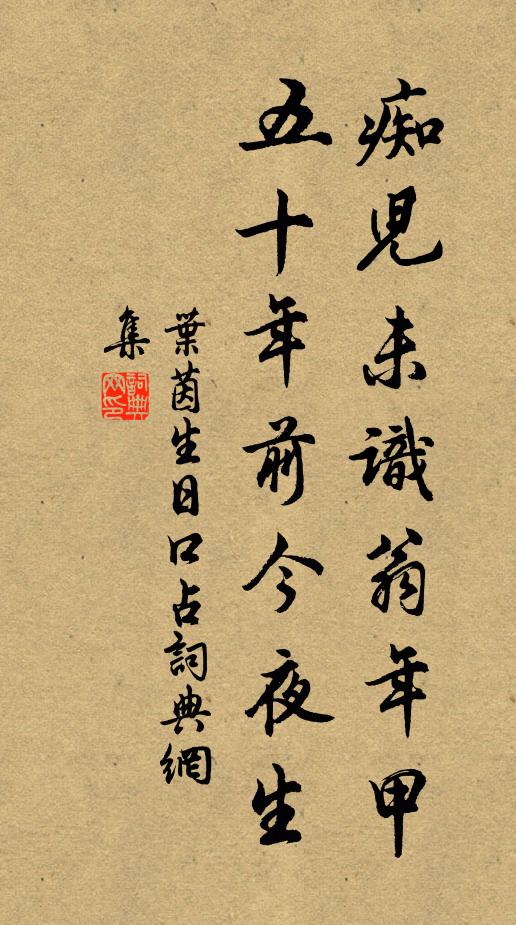 痴児未識翁年甲
五十年前今夜生
葉茵生日口占詞典網
集
詞典
网印